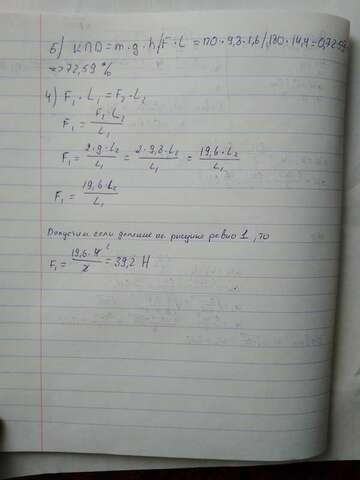 5) КПД = m · g · h / F · L = 110 · 9,8 · 1,6 / 180 · 14,4 = 0,7259
=> 72,59 %
4) F₁ · L₁ = F₂ · L₂
F₁ = F₂ · L₂ / L₁
F₁ = 2 · g · L₂ / L₁ = 2 · 9,8 · L₂ / L₁ = 19,6 · L₂ / L₁
F₁ = 19,6 · L₂ / L₁
Допустим если деление на рисунке равно 1, то
F₁ = 19,6 · 4 / 2 = 39,2 Н